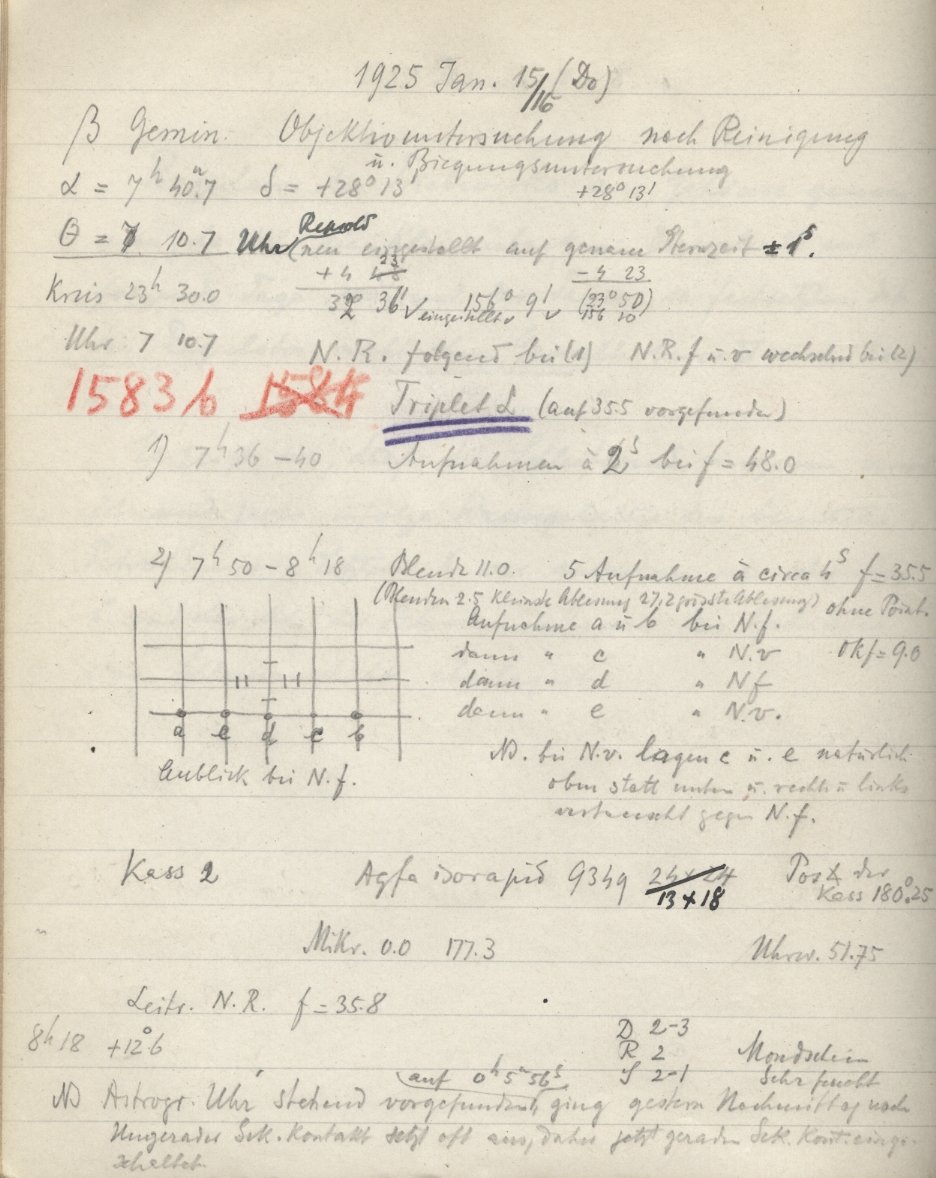 1925 Jan. 15/16 (Do)
β Gemin. Objektivuntersuchung nach Reinigung
u. Biegungsuntersuchung
α = 7h 40.m7 δ = +28° 13 +28° 13'
Θ = 7 10.7 Uhr (Repsold neu eingestellt auf genaue Sternzeit ± 1s.
+4 23 −4 23
Kreis 23h 30.0 32 36' eingestellt 156° 9' (23° 50)
156 10
Uhr 7 10.7 N.R. folgend bei (1) N.R. f u. v wechselnd bei (2)
1583b 1584 Triplet L (auf 355 vorgefunden)
1) 7h 36 – 40 Aufnahmen à 2s bei f = 48.0
2) 7h 50 – 8h 18 Blende 11.0. 5 Aufnahme à circa 4s f = 35.5
(Blenden 2.5 kleinste Ablesung 27,2 grösste Ablesung) ohne Point.
Aufnahme a u b bei N.f.
dann " c " N.v Okf = 9.0
dann " d " N f
dann " e " N.v.
a e d c b
NB. bei N.v. lagen c u. e natürlich
Anblick bei N.f.
oben statt unten u. rechts u links
vertauscht gegen N.f.
Kass 2 Agfa isorapid 9349 24×24 Pos ∡ der
13×18 Kass 180.°25
Mikr. 0.0 177.3 Uhrw. 51.75
Leitr. N.R. f = 35.8
8h 18 +12.°6 D 2-3
R 2 Mondschein
S 2-1 Sehr feucht
auf 0h 5m 56s
NB Astrogr. Uhr stehend vorgefunden, ging gestern Nachmittag noch
Ungerader Sek. Kontakt setzt oft aus, daher jetzt geraden Sek. Kont. einge-
schaltet.